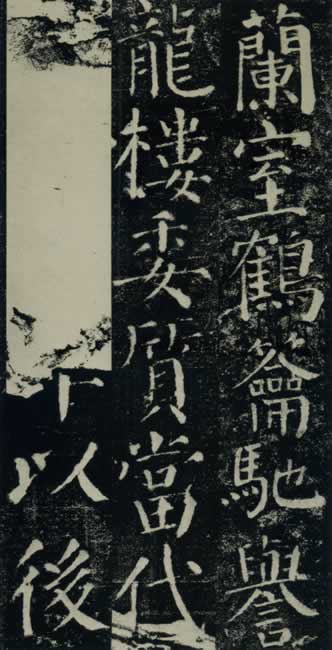 蘭室鶴籥馳譽
龍樓委質當代
下以後